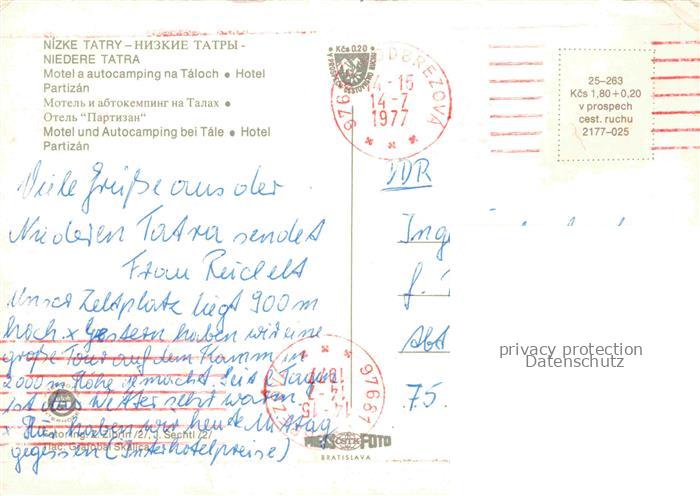 NÍZKE TATRY – НИЗКИЕ ТАТРЫ -
NIEDERE TATRA
Motel a autocamping na Táloch ● Hotel
Partizán
Мотель и абтокемпинг на Талах ●
Отель "Партизан"
Motel und Autocamping bei Tále ● Hotel
Partizán
Kčs 0,20
976 PODBREZOVÁ
14-15
14-7
1977
25–263
Kčs 1,80+0,20
v prospech
cest. ruchu
2177–025
Viele Grüße aus der
Niederen Tatra sendet
Frau Reichelt
Unser Zeltplatz liegt 900 m
hoch. x Gestern haben wir eine
große Tour auf dem Kamm in
2000 m Höhe gemacht. Seit 2 Tagen
ist das Wetter sehr warm.
x Hier haben wir heute Mittag
gegessen (Interhotelpreise)
DDR
Ing
Abt
75
privacy protection
Datenschutz
97681
14-15
14-7
1977
PRESS FOTO
BRATISLAVA